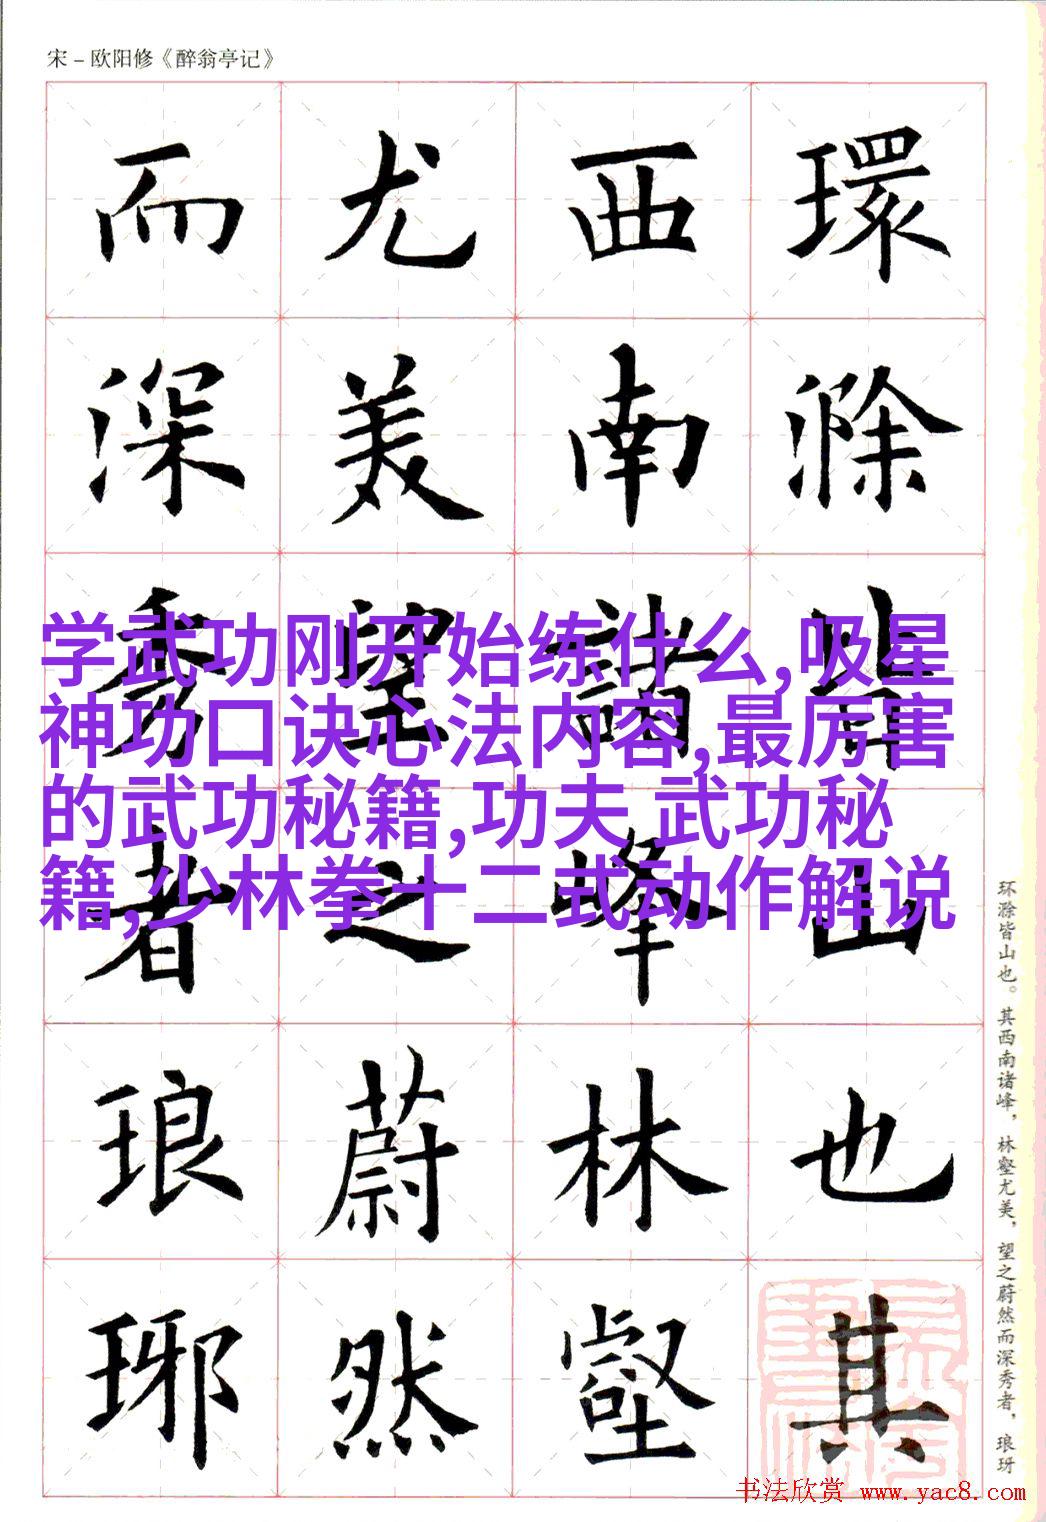 宋－欧阳修《醉翁亭记》
環滁皆山也其
西南諸峰林壑
尤美望之蔚然
而深秀者琅琊
学武功刚开始练什么,吸星
神功口诀心法内容,最厉害
的武功秘籍,功夫 武功秘
籍,少林拳十二式动作解说
环滁皆山也。其西南诸峰，林壑尤美，望之蔚然而深秀者，琅玡
书法欣赏 www.yac8.com